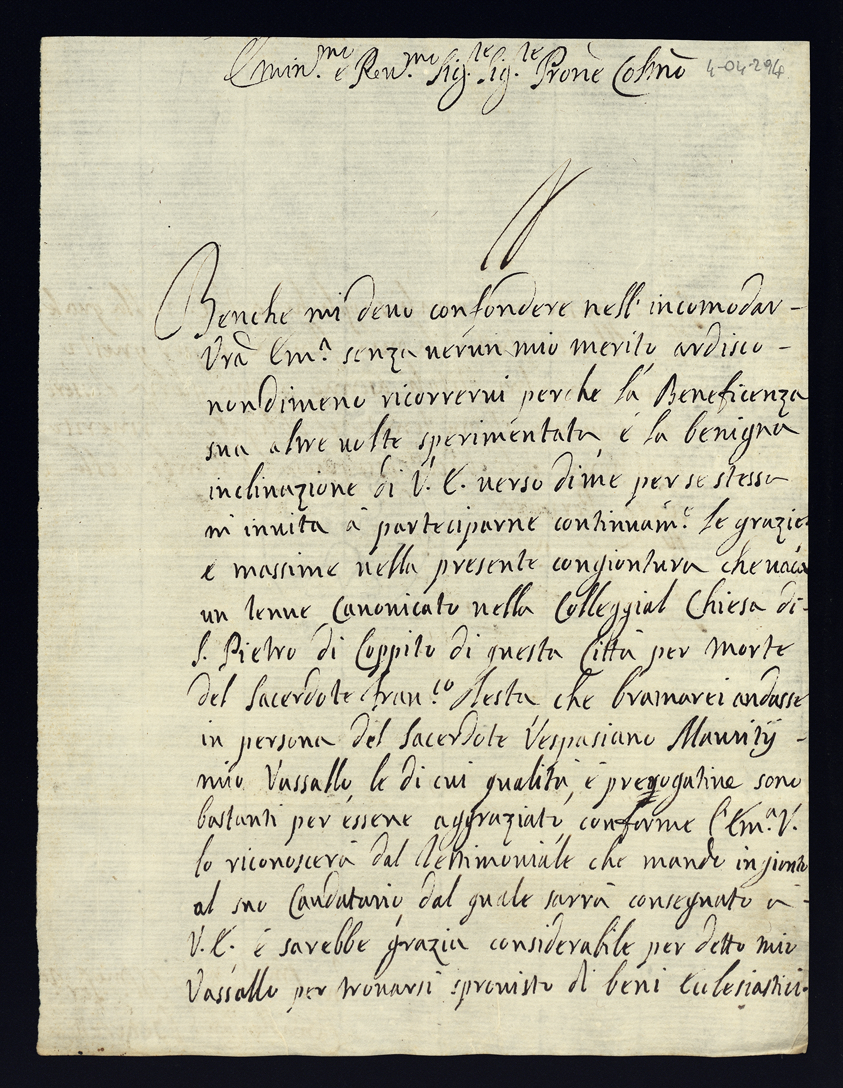 Emin.mo e Rev.mo Sig.re Sig.re Prone Colmo 4-04-294
Benche mi devo confondere nell'incomodar-
Vra Em.a senza verun mio merito ardisco-
nondimeno ricorrervi perche la Beneficenza
sua altre volte sperimentata, e la benigna
inclinazione di V. E. verso di me per se stessa
m'invita à participarne continuam.e le grazie
e massime nella presente congiontura che vaca
un tenue Canonicato nella Colleggial Chiesa di-
S. Pietro di Coppito di questa Città per morte
del Sacerdote Fran.co che bramarei andasse
in persona del Sacerdote Vespasiano Mauritij -
mio Vassallo le di cui qualità, e prerogative sono
bastanti per essene aggraziato, conforme l'Em.a V.
lo riconoscerà dal testimoniale che mando ingionto
al suo Caudatario dal quale sarrà consegnato à -
V. E. e sarebbe grazia considerabile per detto mio
Vassallo per trovarsi sprovisto di beni Ecclesiastici.